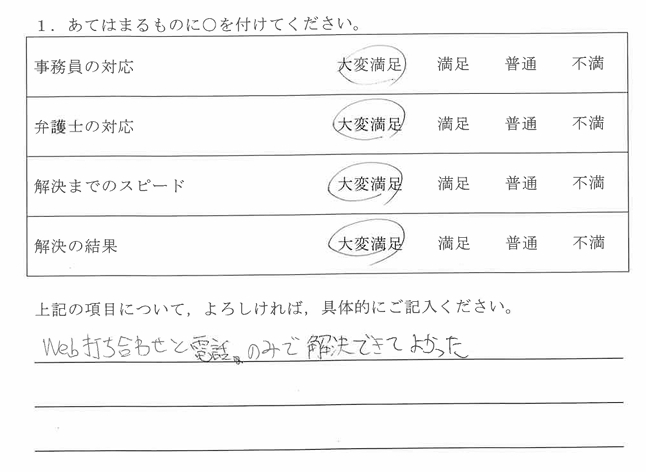 1．あてはまるものに○を付けてください。
事務員の対応 大変満足 満足 普通 不満
弁護士の対応 大変満足 満足 普通 不満
解決までのスピード 大変満足 満足 普通 不満
解決の結果 大変満足 満足 普通 不満
上記の項目について，よろしければ，具体的にご記入ください。
Web打ち合わせと電話のみで解決できてよかった